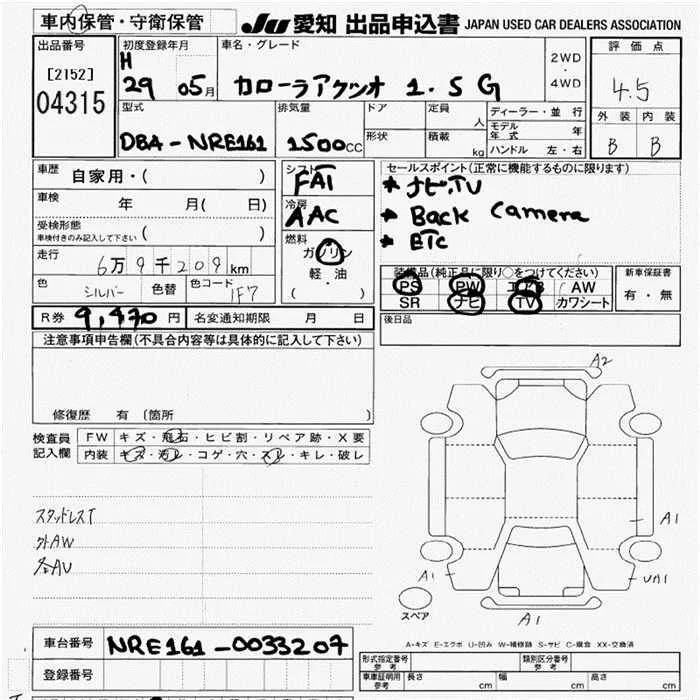 車内保管・守衛保管
JU 愛知 出品申込書 JAPAN USED CAR DEALERS ASSOCIATION
出品番号
[2152]
04315
初度登録年月
H
29 05月
車名・グレード
カローラアクシオ 1.5 G
2WD
・
4WD
評価点
4.5
外装 内装
B B
型式
DBA-NRE161
排気量
1500CC
ドア
形状
定員
人
積載
kg
ディーラー・並行
モデル年式 年
ハンドル 左・右
車歴
自家用・( )
車検
年 月( 日)
受検形態
車検付きのみ記入して下さい ( )
走行
6万9千209km
色
シルバー
色替
色コード
1F7
シフト
FAT
冷房
AAC
燃料
ガソリン
軽・油
( )
セールスポイント(正常に機能するものに限ります)
* ナビ.TV
* Back Camera
* ETC
装備品(純正品に限り○をつけてください)
PS PW エアB AW
SR ナビ TV カワシート
新車保証書
有・無
R券 9,470円
名変通知期限 月 日
後日品
注意事項申告欄(不具合内容等は具体的に記入して下さい)
修復歴 有 〔箇所 〕
検査員
記入欄
FW キズ・飛石・ヒビ割・リペア跡・X要
内装 キズ・汚レ・コゲ・穴・スレ・キレ・破レ
スタッドレスT
外AW
A2
A1
A1
UA1
A1
スペア
A-キズ E-エクボ U-凹み W-補修跡 S-サビ C-腐食 XX-交換済
車台番号
NRE161-0033207
登録番号
形式指定番号
参考
類別区分番号
参考
車庫証明用
参考
長さ cm 幅 cm 高さ cm